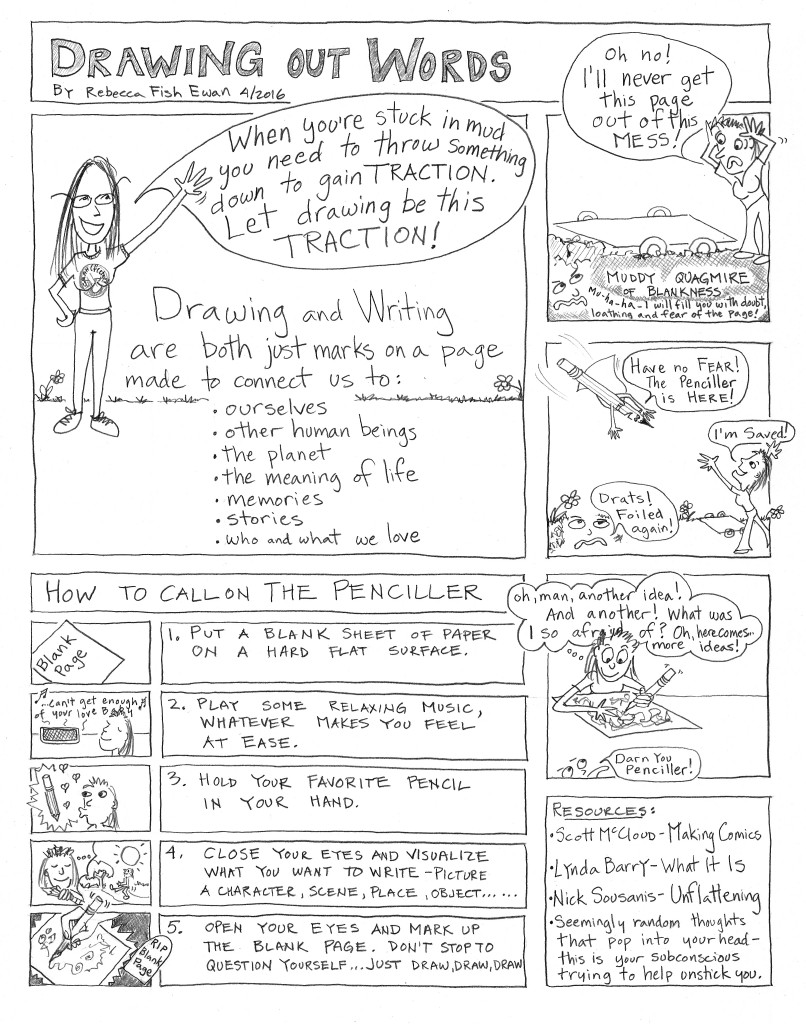 DRAWING OUT WORDS
By Rebecca Fish Ewan 4/2016
When you're stuck in mud
you need to throw something
down to gain TRACTION.
Let drawing be this
TRACTION!
Drawing and Writing
are both just marks on a page
made to connect us to:
• ourselves
• other human beings
• the planet
• the meaning of life
• memories
• stories
• who and what we love
Oh no!
I'll never get
this page
out of this
MESS!
MUDDY QUAGMIRE
OF BLANKNESS
Mu-ha-ha-I will fill you with doubt,
loathing and fear of the page!
Have no FEAR!
The Penciller
is HERE!
I'm Saved!
Drats!
Foiled
again!
oh, man, another idea!
And another! What was
I so afraid of? Oh, here comes..
more ideas!
Darn You
Penciller!
HOW TO CALL ON THE PENCILLER
Blank
Page
1. PUT A BLANK SHEET OF PAPER
ON A HARD FLAT SURFACE.
...Can't get enough
of your love B
2. PLAY SOME RELAXING MUSIC,
WHATEVER MAKES YOU FEEL
AT EASE.
3. HOLD YOUR FAVORITE PENCIL
IN YOUR HAND.
4. CLOSE YOUR EYES AND VISUALIZE
WHAT YOU WANT TO WRITE - PICTURE
A CHARACTER, SCENE, PLACE, OBJECT......
RIP
Blank
Page
5. OPEN YOUR EYES AND MARK UP
THE BLANK PAGE. DON'T STOP TO
QUESTION YOURSELF...JUST DRAW, DRAW, DRAW
RESOURCES:
• Scott McCloud - Making Comics
• Lynda Barry - What It Is
• Nick Sousanis - Unflattening
• Seemingly random thoughts
that pop into your head -
this is your subconscious
trying to help unstick you.